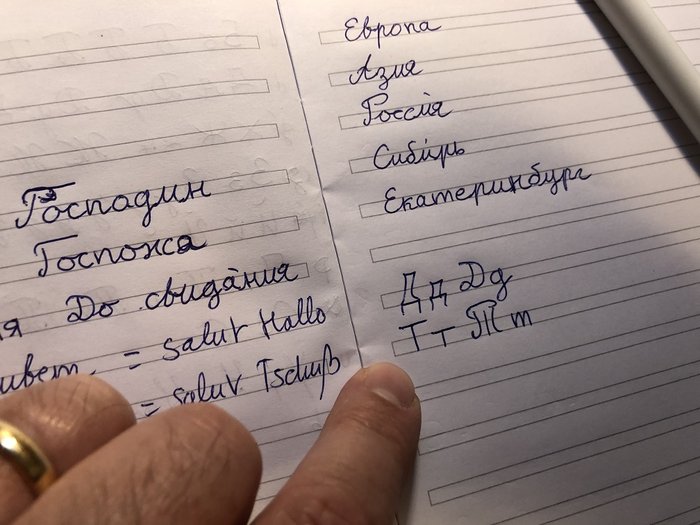 Господин
Госпожа
До свидáния
= salut Hallo
= salut Tschüß
Европа
Азия
Россия
Сиби́рь
Екатеринбург
Д д D g
Т т Т т